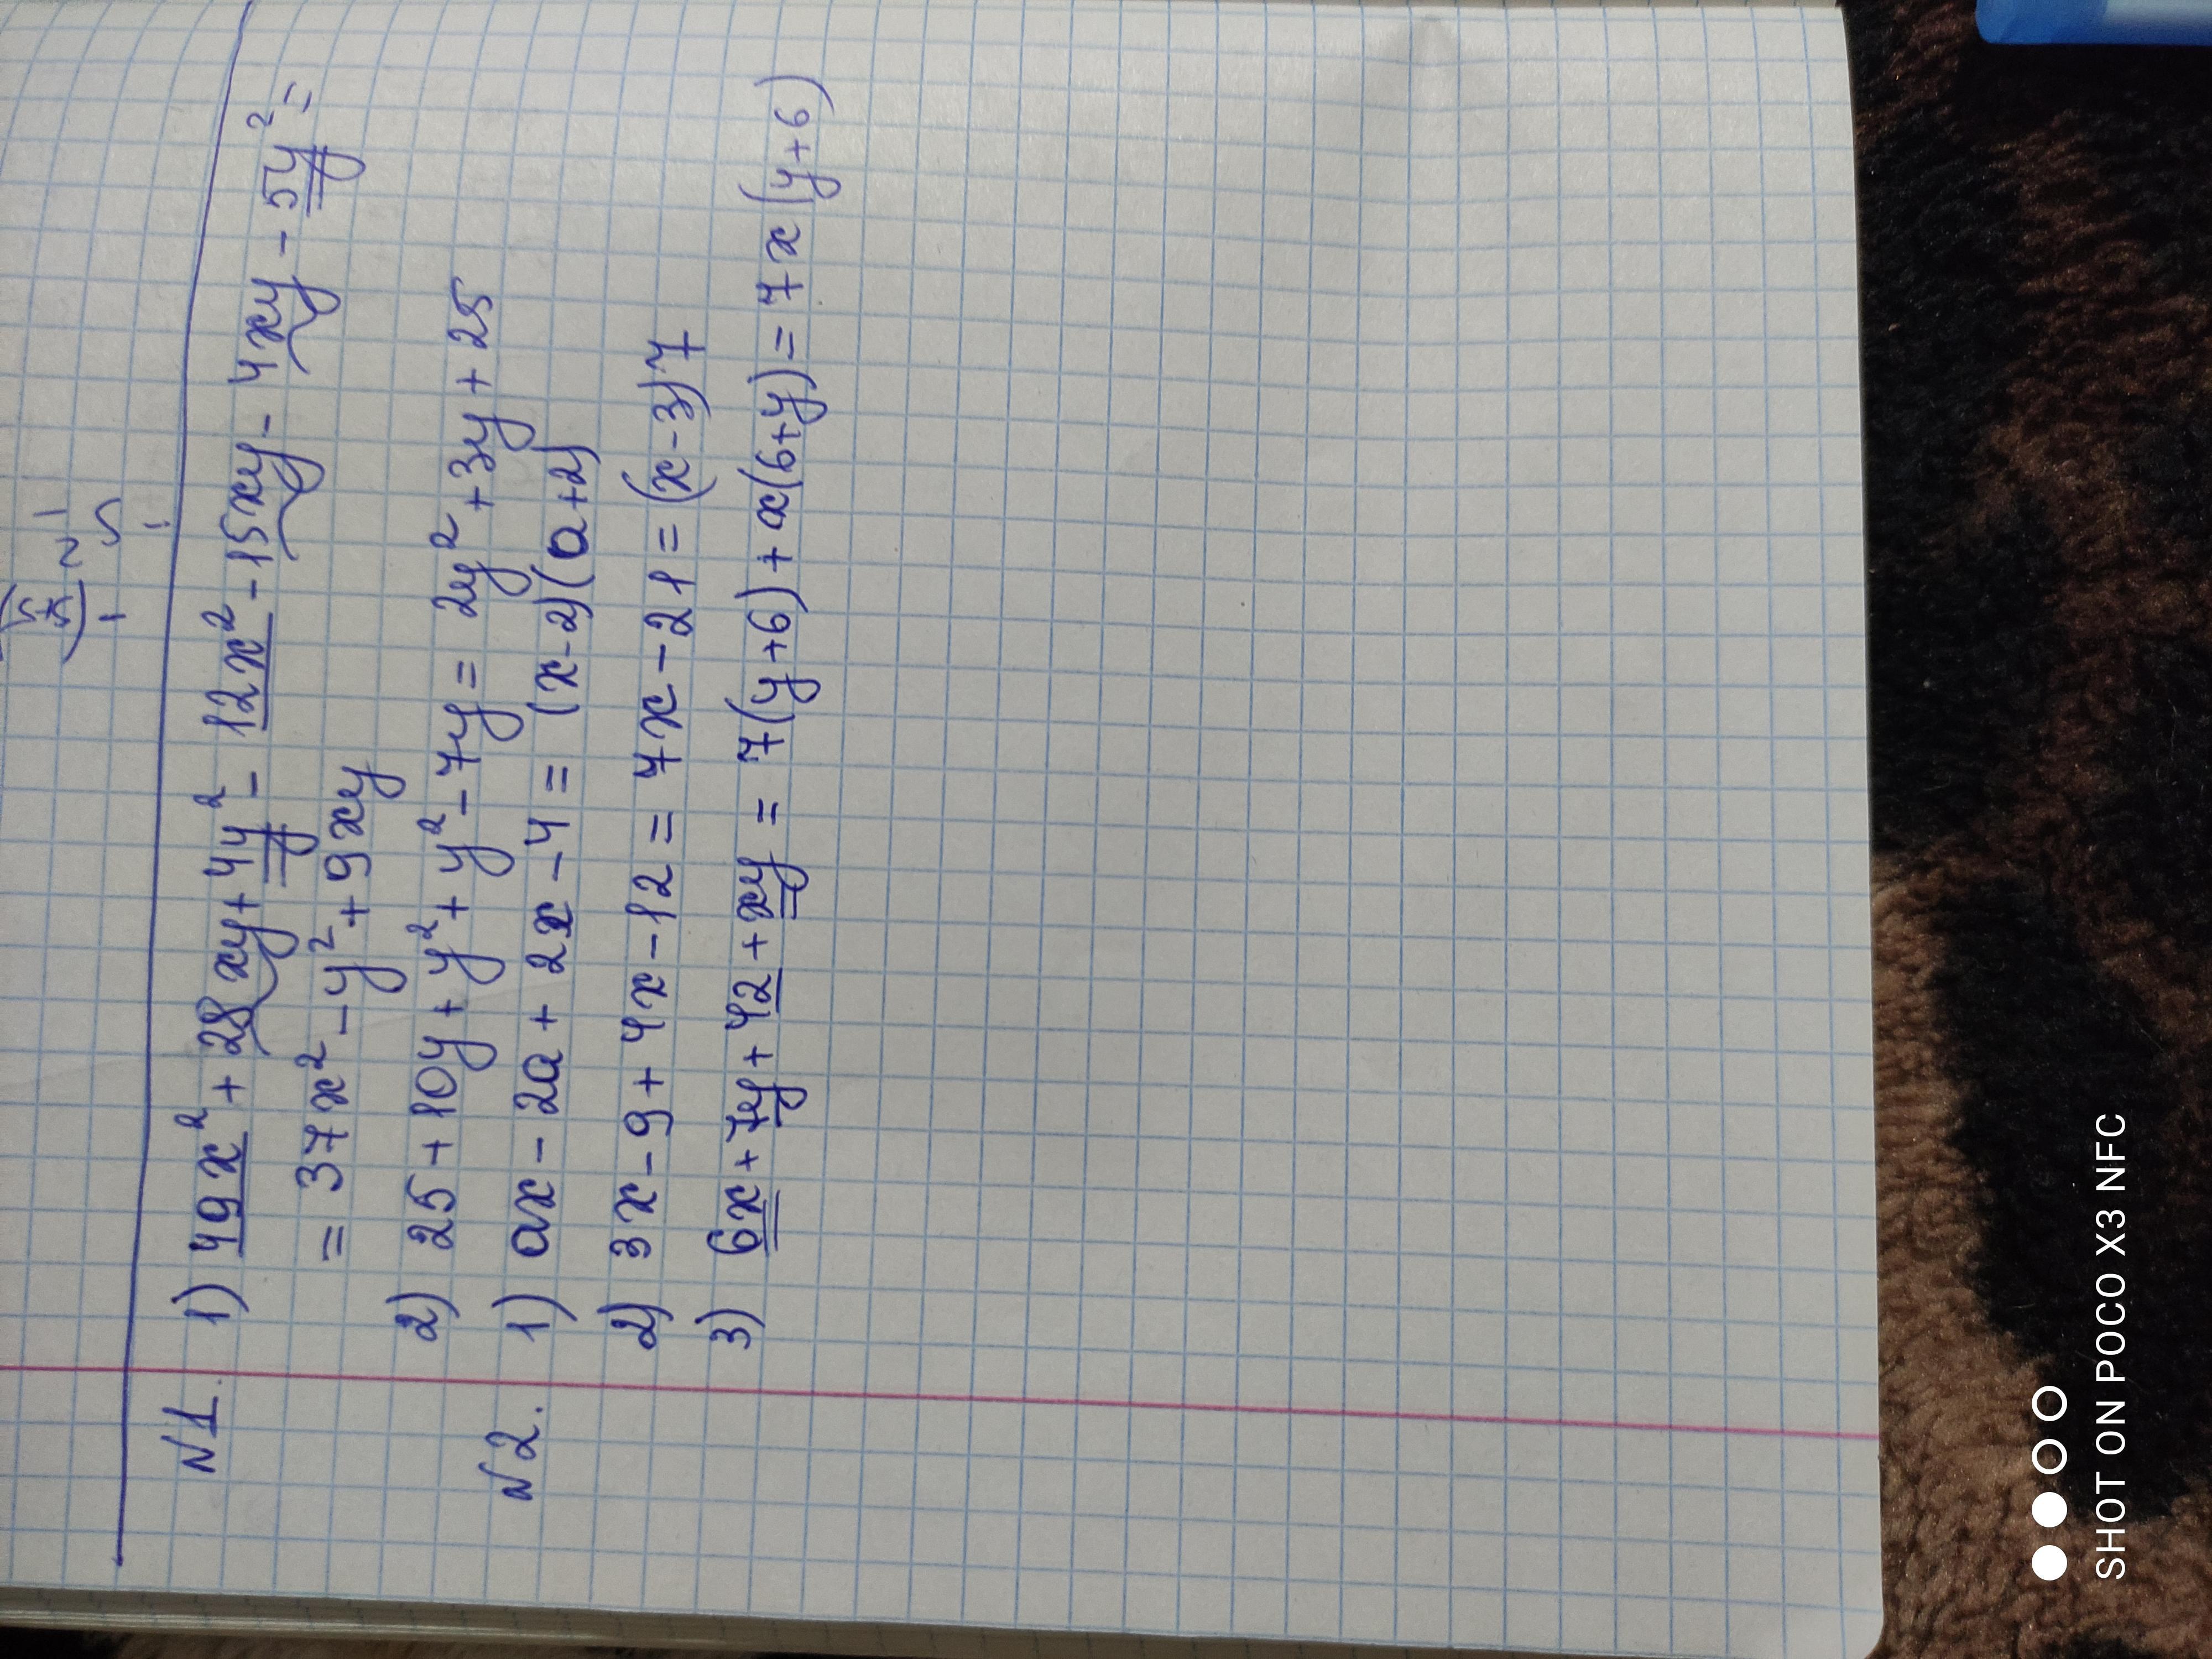 N1. 1) 49x² + 28xy + 4y² - 12x² - 15xy - 4xy - 5y² =
= 37x² - y² + 9xy
2) 25 + 10y + y² + y² - 7y = 2y² + 3y + 25
N2. 1) ax - 2a + 2x - 4 = (x-2)(a+2)
2) 3x - 9 + 4x - 12 = 7x - 21 = (x-3)7
3) 6x + 7y + 42 + xy = 7(y+6) + x(6+y) = 7x(y+6)
SHOT ON POCO X3 NFC